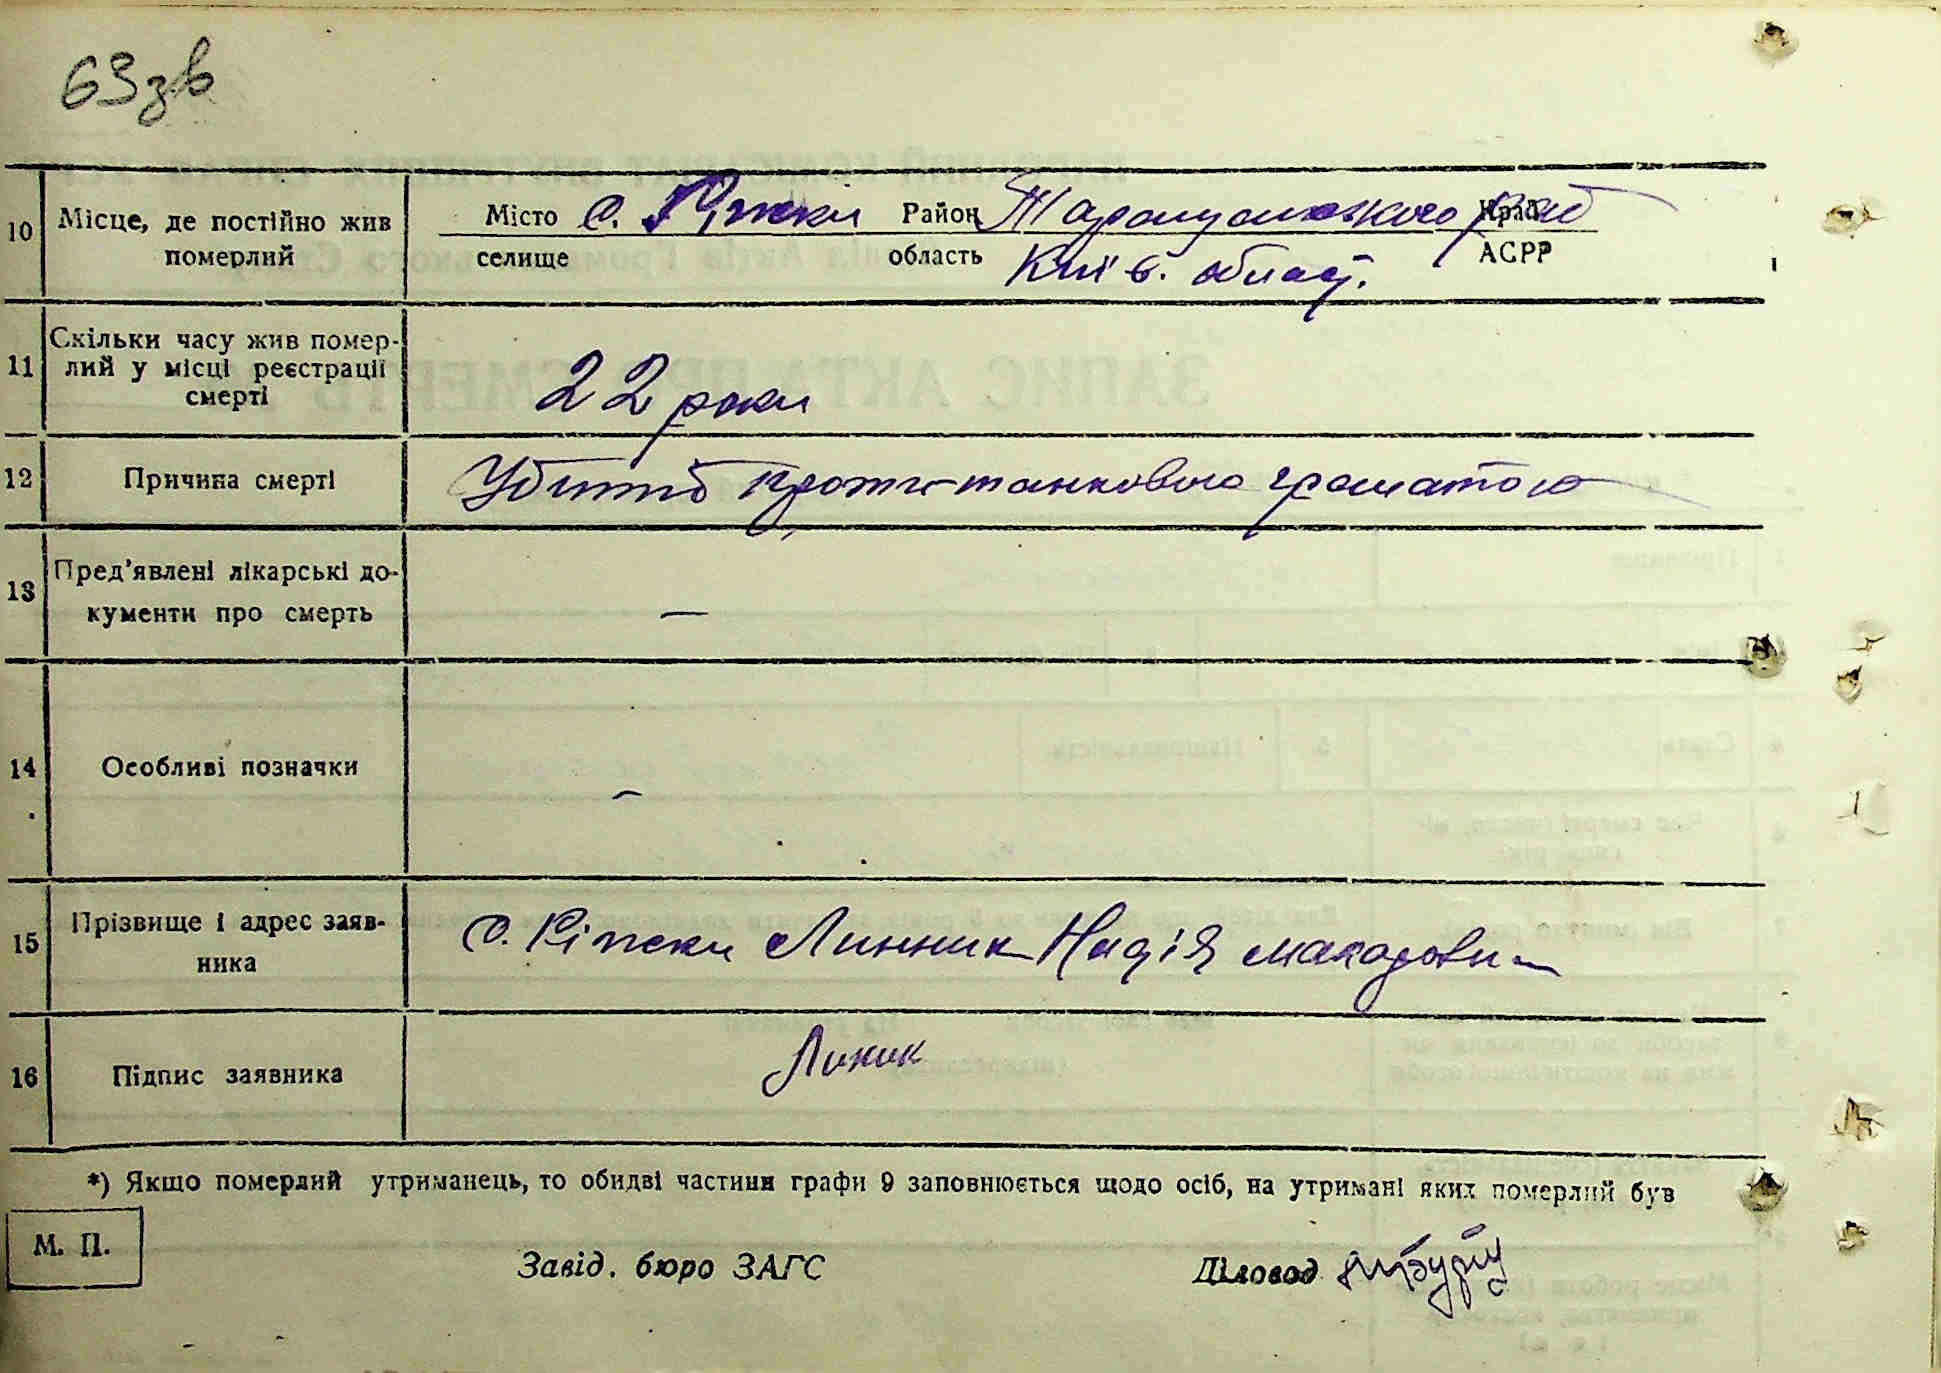 63зв
10 Місце, де постійно жив Місто с. Ріжки Район Таращанського Край
померлий селище область Київ. област. АСРР
11 Скільки часу жив помер-
лий у місці реєстрації
смерті 22 роки
12 Причина смерті Убитий проти-танковою гранатою
13 Пред'явлені лікарські до-
кументи про смерть —
14 Особливі позначки —
15 Прізвище і адрес заяв-
ника с. Ріжки Линник Надія Макаровн
16 Підпис заявника Линик
*) Якщо померлий утриманець, то обидві частини графи 9 заповнюється щодо осіб, на утримані яких померлий був
М. П.
Завід. бюро ЗАГС Діловод